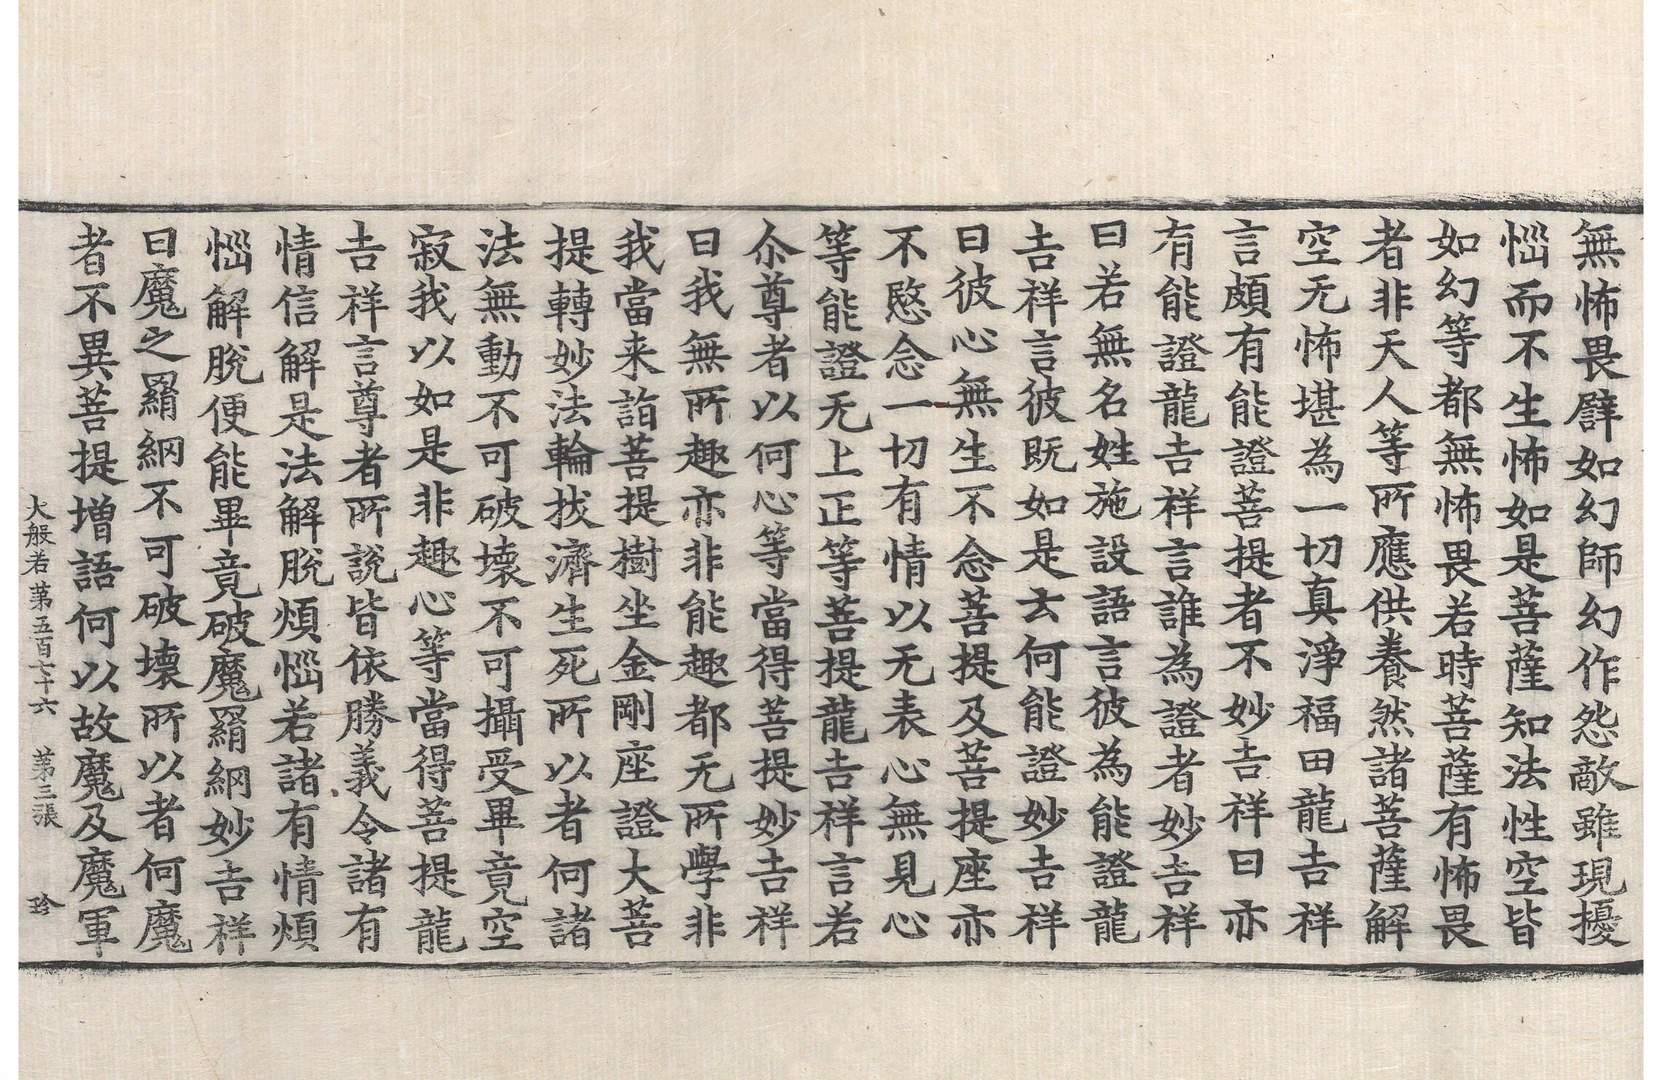 無怖畏譬如幻師幻作怨敵雖現擾
惱而不生怖如是菩薩知法性空皆
如幻等都無怖畏若時菩薩有怖畏
者非天人等所應供養然諸菩薩解
空无怖堪為一切真淨福田龍吉祥
言頗有能證菩提者不妙吉祥曰亦
有能證龍吉祥言誰為證者妙吉祥
曰若無名姓施設語言彼為能證龍
吉祥言彼既如是云何能證妙吉祥
曰彼心無生不念菩提及菩提座亦
不愍念一切有情以无表心無見心
等能證无上正等菩提龍吉祥言若
尒尊者以何心等當得菩提妙吉祥
曰我無所趣亦非能趣都无所學非
我當来詣菩提樹坐金剛座證大菩
提轉妙法輪拔濟生死所以者何諸
法無動不可破壞不可攝受畢竟空
寂我以如是非趣心等當得菩提龍
吉祥言尊者所說皆依勝義令諸有
情信解是法解脫煩惱若諸有情煩
惱解脫便能畢竟破魔羂網妙吉祥
曰魔之羂網不可破壞所以者何魔
者不異菩提增語何以故魔及魔軍
大般若 苐五百七十六 苐三張 珎